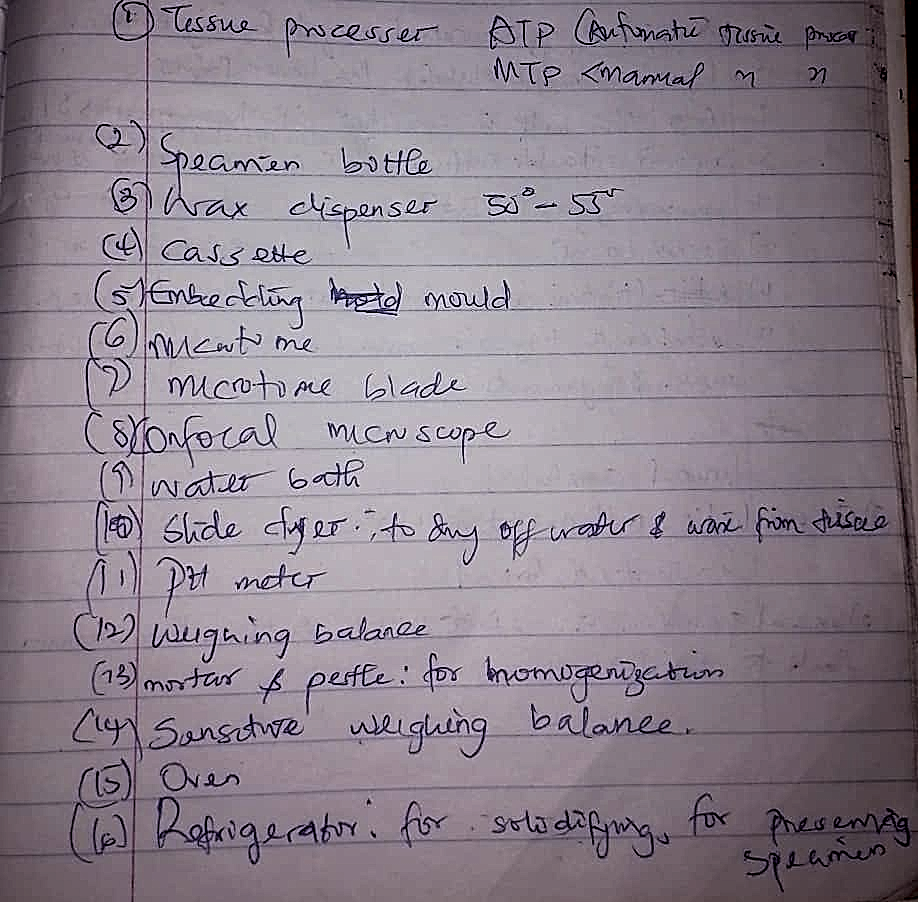 (1) Tissue processer ATP (Automatic tissue
MTP <manual " "
(2) Specimen bottle
(3) Wax dispenser 50° - 55°
(4) Cassette
(5) Embedding mould
(6) Microtome
(7) microtome blade
(8) Confocal microscope
(9) water bath
(10) Slide dryer :, to dry off water & wax from tissue
(11) PH meter
(12) Weighing balance
(13) mortar & pestle: for homogenization
(14) Sensitive weighing balance.
(15) Oven
(16) Refrigerator: for solidifying, for preserving
specimen